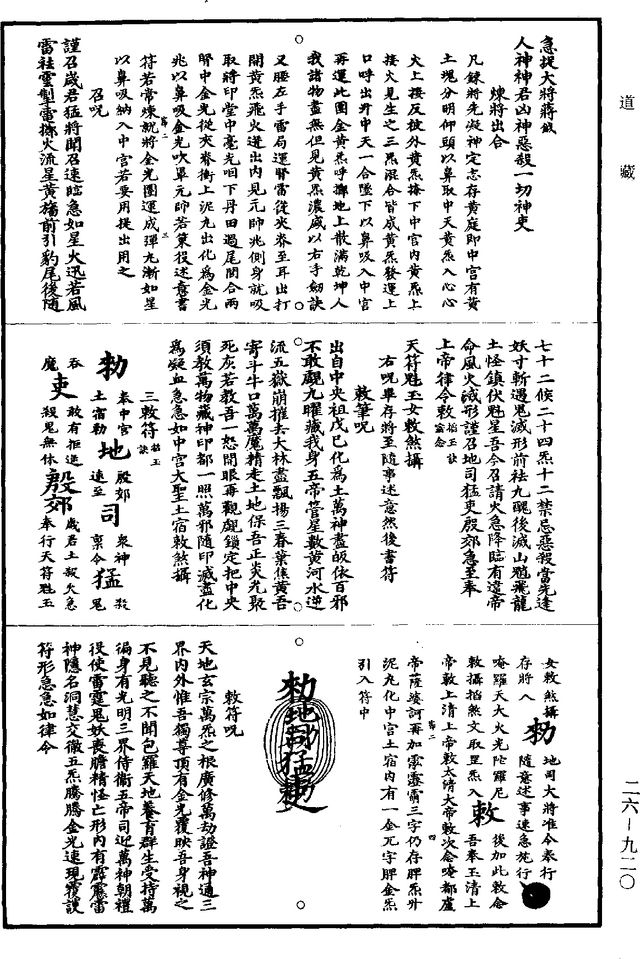 道藏
急捉大將蔣鉞
人神神君凶神惡殺一切神吏
煉將出合
凡鍊將先凝神定志存黃庭即中宮有黃
土塊分明仰頭以鼻取中天黃炁入心心
火上接反披外黃炁接下中宮內黃炁上
接火見生之三炁混合皆成黃炁發運上
口呼出升中天一合墜下以鼻吸入中宮
再運此團金黃炁呼擲地上散滿乾坤人
我諸物盡無但見黃炁濃盛以右手劍訣
叉腰左手雷局運腎當從夾脊至耳出打
開黃炁飛火迸出內見元帥兆側身就吸
取將印堂中毫光咽下丹田過尾閭合兩
腎中金光從夾脊衝上泥丸出化為金光
兆以鼻吸金光吹單元帥若策役述意書
符若常煉就將金光團運成彈丸漸如星
以鼻吸納入中宮若要用提出用之
召咒
謹召歲君猛將聞召速臨急如星火迅若風
雷社雲掣電擲火流星黃旛前引豹尾後隨
七十二候二十四炁十二禁忌惡殺當先逢
妖寸斬遇鬼滅形前祛九醜後滅山魈飛龍
土怪鎮伏魁星吾今召請火急降臨有違帝
命風火滅形謹召地司猛吏殷郊急至奉
上帝律令敕
天符魁玉女敕煞攝
右咒畢存將至隨事述意然後書符
敕筆咒
出自中央祖戊己化為土萬神盡皈依百邪
不敢覷九曜藏我身五帝管星數黃河水逆
流五嶽崩摧去大林盡飄揚三春葉焦黃吾
寄斗牛口萬萬魔精走土地保吾正炎光聚
死灰若教吾一怒開眼再觀覷鎖定把中央
須教萬物藏神印都一照萬邪隨印滅盡化
為凝血急急如中宮大聖土宿敕煞攝
三敕符
敕地司猛吏殷郊
女敕煞攝 敕 地司大將准令奉行
存將入 隨意述事速急施行
唵羅天大火光陀羅尼 後加此敕念
敕攝掐煞文取罡炁入 敕 吾奉玉清上
帝敕上清上帝敕太清大帝敕次念唵都盧
帝薩婆訶再加雷靈霸三字仍存脾炁升
泥丸化中宮土宿內有一金元字脾金炁
引入符中
敕地司猛吏
敕符咒
天地玄宗萬炁之根廣修萬劫證吾神通三
界內外惟吾獨尊頂有金光覆映吾身視之
不見聽之不聞包羅天地養育群生受持萬
徧身有光明三界侍衛五帝司迎萬神朝禮
役使雷霆鬼妖喪膽精怪亡形內有霹靂雷
神隱名洞慧交徹五炁騰騰金光速現覆護
符形急急如律令
二六—九二〇